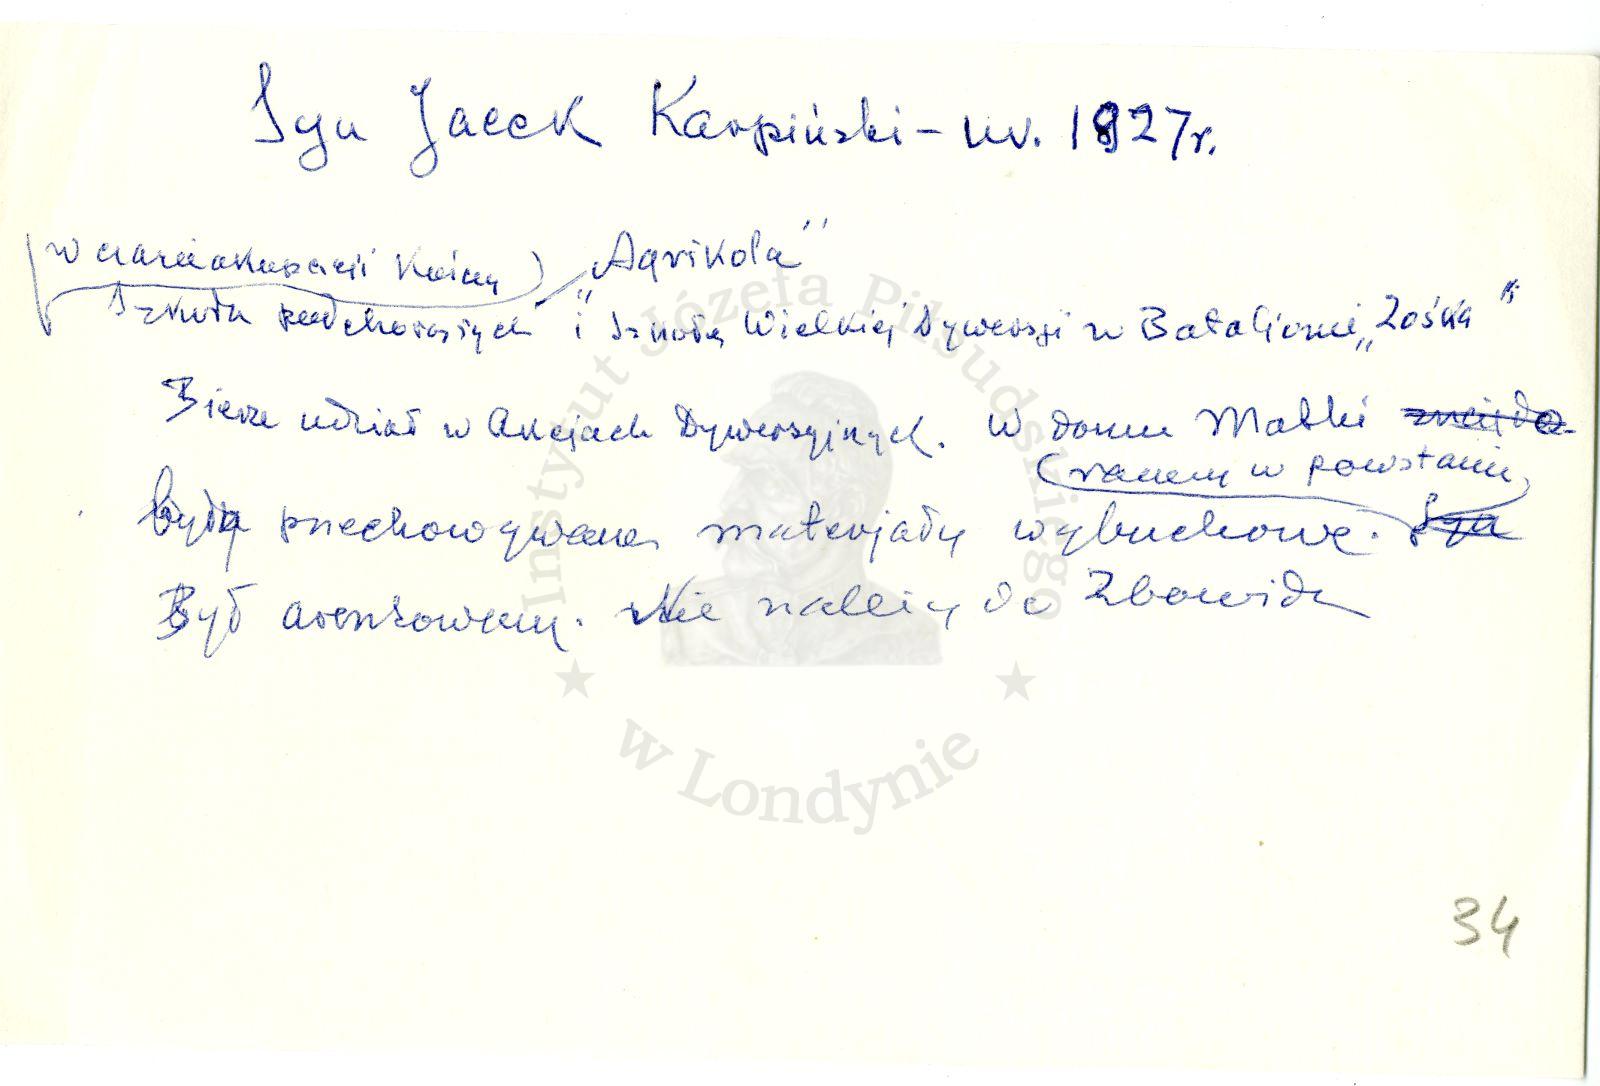 Syn Jacek Karpiński – ur. 1927 r.
w czasie okupacji kończy „Agrikola”
Szkoła podchorążych i Szkołę Wielkiej Dywersji w Batalionie „Zośka”
Bierze udział w Akcjach Dywersyjnych. W domu Matki
(ranny w powstaniu)
były przechowywane materjały wybuchowe. Syn
Był aresztowany. Nie należy do Zbowidu
34
Instytut Józefa Piłsudskiego
w Londynie